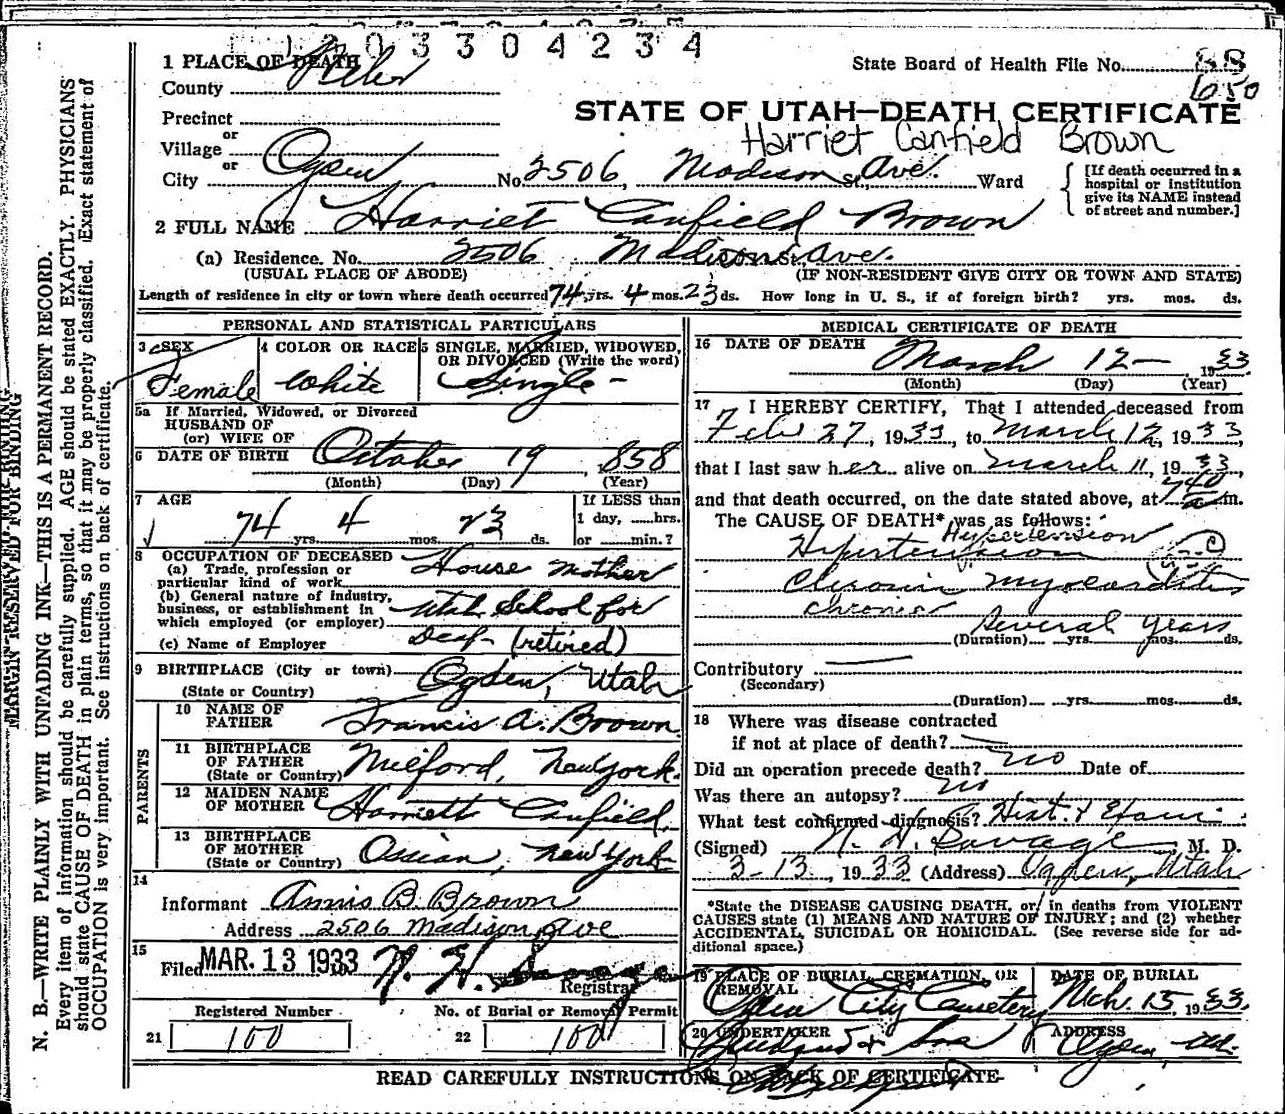 1 2 0 3 3 0 4 2 3 4
1 PLACE OF DEATH
State Board of Health File No. 88
650
County Weber
STATE OF UTAH—DEATH CERTIFICATE
Precinct
Harriet Canfield Brown
or
Village
or
City Ogden No. 2506, Madison St., Ave. Ward
[If death occurred in a hospital or institution give its NAME instead of street and number.]
2 FULL NAME Harriet Canfield Brown
(a) Residence. No. 2506 Madison St. Ave.
(USUAL PLACE OF ABODE) (IF NON-RESIDENT GIVE CITY OR TOWN AND STATE)
Length of residence in city or town where death occurred 74 yrs. 4 mos. 23 ds. How long in U. S., if of foreign birth? yrs. mos. ds.
PERSONAL AND STATISTICAL PARTICULARS
3 SEX Female
4 COLOR OR RACE White
5 SINGLE, MARRIED, WIDOWED, OR DIVORCED (Write the word) Single -
5a If Married, Widowed, or Divorced
HUSBAND OF
(or) WIFE OF
6 DATE OF BIRTH October 19, 1858
(Month) (Day) (Year)
7 AGE
74 yrs. 4 mos. 23 ds.
If LESS than
1 day, ......hrs.
or ......min.?
8 OCCUPATION OF DECEASED
(a) Trade, profession or
particular kind of work House Mother
(b) General nature of industry,
business, or establishment in
which employed (or employer) Utah School for
Deaf (retired)
(c) Name of Employer
9 BIRTHPLACE (City or town) Ogden, Utah
(State or Country)
PARENTS
10 NAME OF
FATHER Francis A. Brown
11 BIRTHPLACE
OF FATHER
(State or Country) Milford, New York.
12 MAIDEN NAME
OF MOTHER Harriett Canfield
13 BIRTHPLACE
OF MOTHER
(State or Country) Ossian, New York
14
Informant Annis B. Brown
Address 2506 Madison Ave
15
Filed MAR. 13 1933 N. H. Savage
Registrar
Registered Number No. of Burial or Removal Permit
21 100 22 100
MEDICAL CERTIFICATE OF DEATH
16 DATE OF DEATH
March 12 — 1933
(Month) (Day) (Year)
17 I HEREBY CERTIFY, That I attended deceased from
Feb 27, 1933, to March 12, 1933,
that I last saw her alive on March 11, 1933
and that death occurred, on the date stated above, at 740 a m.
The CAUSE OF DEATH* was as follows:
Hypertension
Hypertension
Chronic myocarditis
chronic
Several years
(Duration) yrs. mos. ds.
Contributory
(Secondary)
(Duration) yrs. mos. ds.
18 Where was disease contracted
if not at place of death?
Did an operation precede death? no Date of
Was there an autopsy? no
What test confirmed diagnosis? Hist. & Exam
(Signed) N. H. Savage, M. D.
3-13, 1933 (Address) Ogden, Utah
*State the DISEASE CAUSING DEATH, or in deaths from VIOLENT
CAUSES state (1) MEANS AND NATURE OF INJURY; and (2) whether
ACCIDENTAL, SUICIDAL OR HOMICIDAL. (See reverse side for ad-
ditional space.)
19 PLACE OF BURIAL, CREMATION, OR
REMOVAL
Ogden City Cemetery
DATE OF BURIAL
Mch. 15, 1933
20 UNDERTAKER
& Son
ADDRESS
Ogden, Ut.
READ CAREFULLY INSTRUCTIONS ON BACK OF CERTIFICATE
MARGIN RESERVED FOR BINDING
N. B.—WRITE PLAINLY WITH UNFADING INK—THIS IS A PERMANENT RECORD.
Every item of information should be carefully supplied. AGE should be stated EXACTLY. PHYSICIANS
should state CAUSE OF DEATH in plain terms, so that it may be properly classified. Exact statement of
OCCUPATION is very important. See instructions on back of certificate.